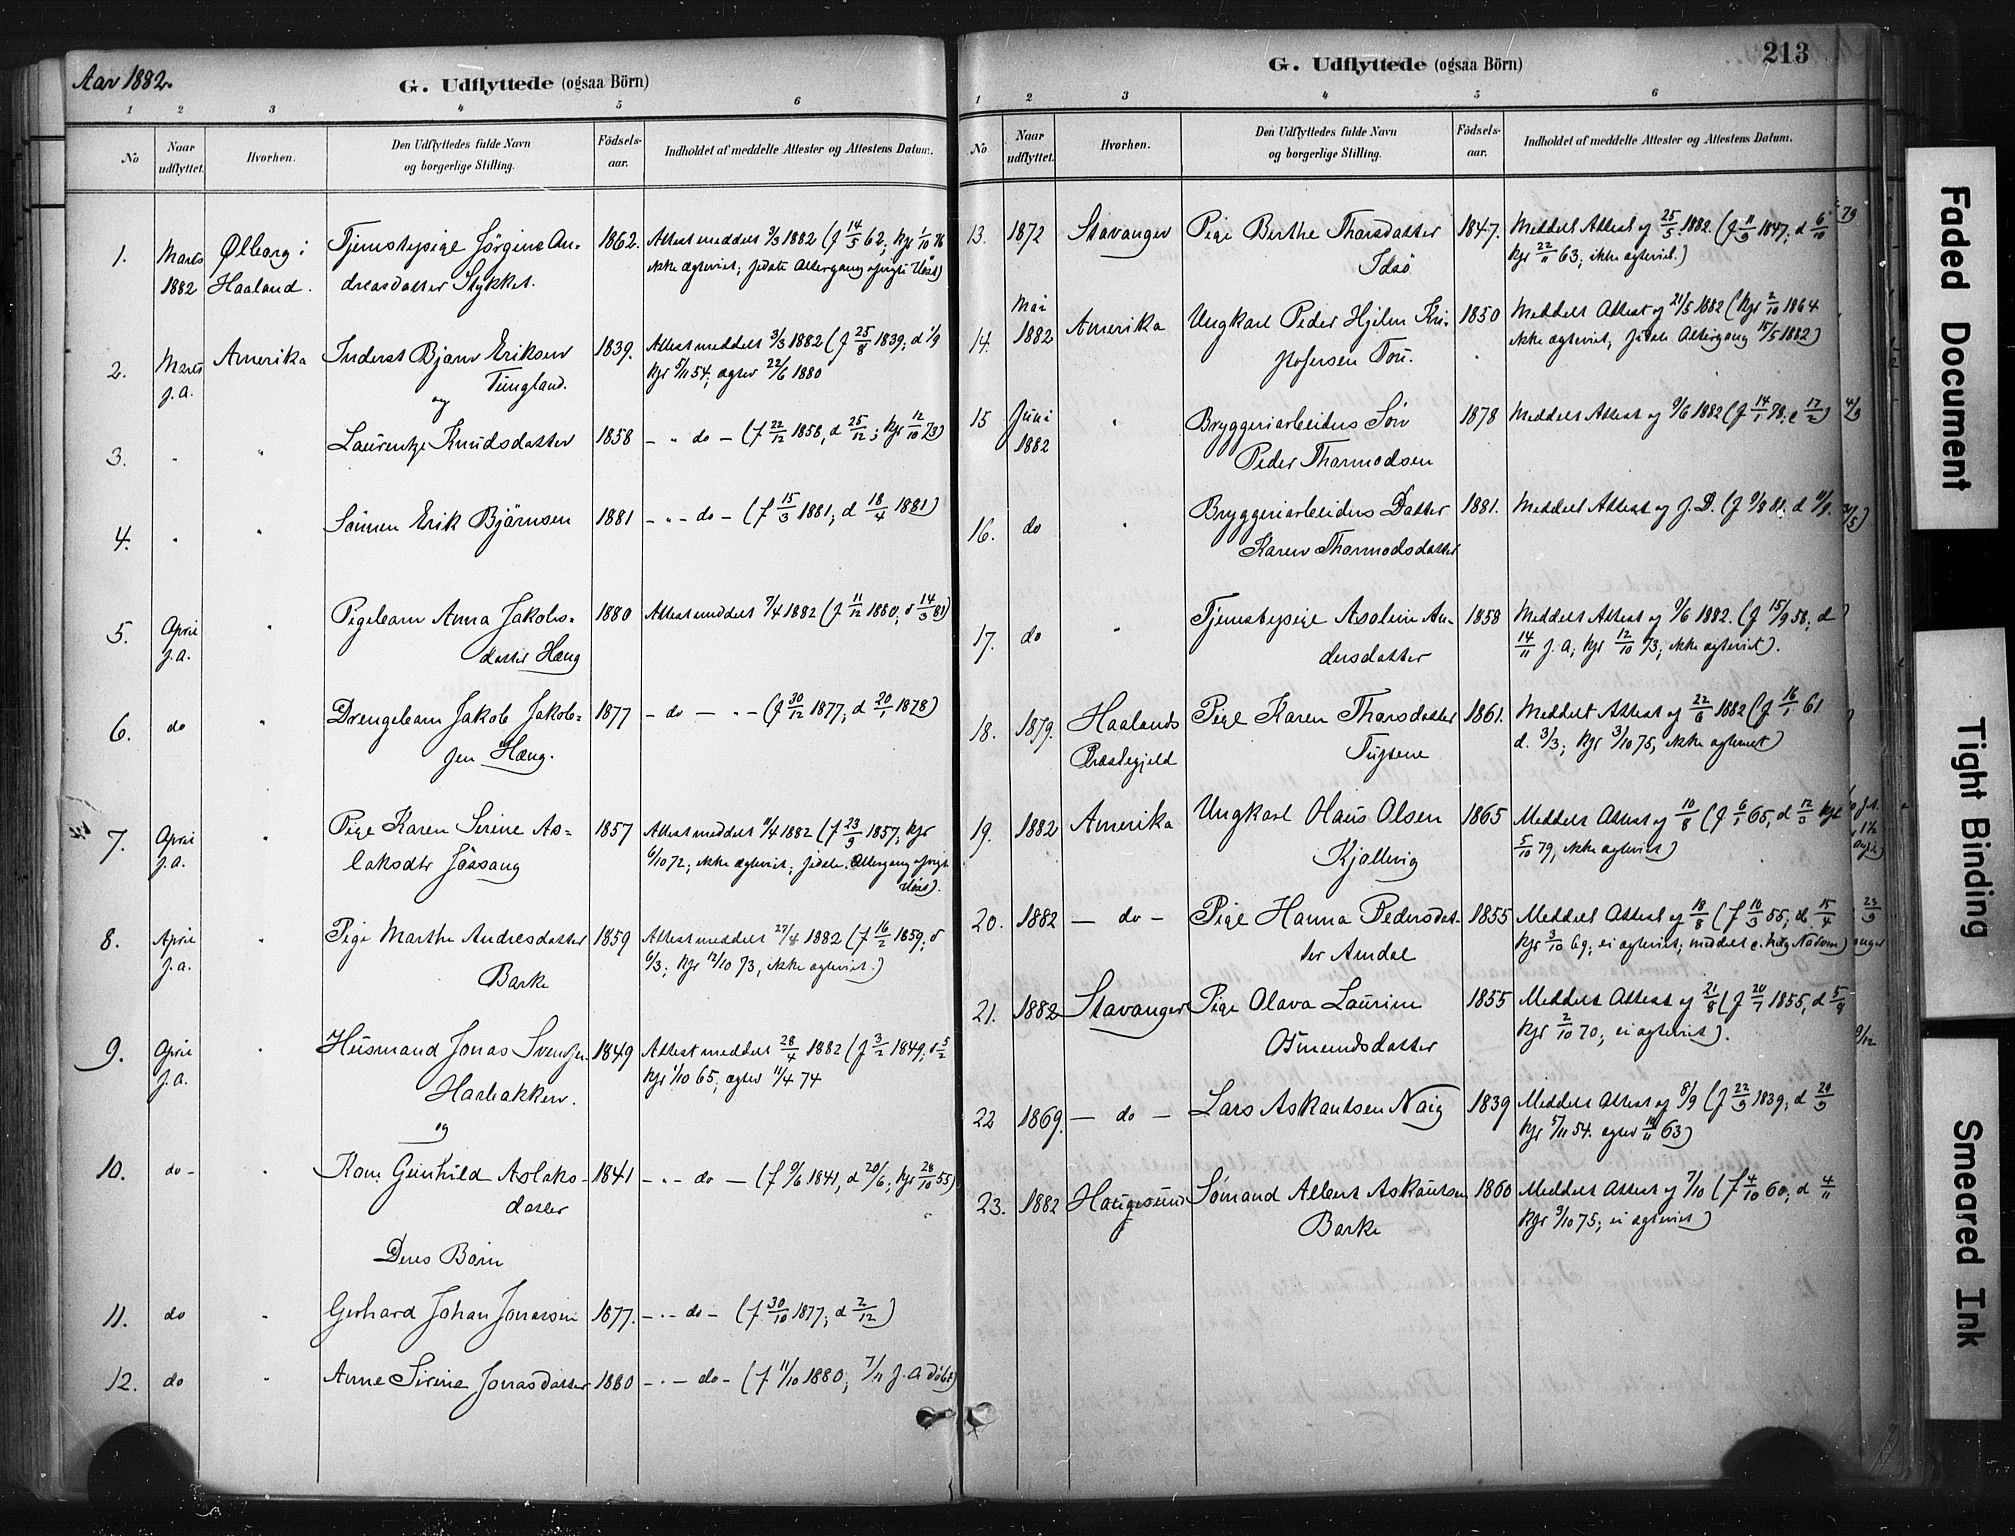 Aar 1882.
G. Udflyttede (ogsaa Börn)
1 2 3 4 5 6
No
Naar udflyttet.
Hvorhen.
Den Udflyttedes fulde Navn og borgerlige Stilling.
Födsels-aar.
Indholdet af meddelte Attester og Attestens Datum.
1. Marts Ølberg i Tjenestepige Jørgine An- 1862. Attest meddelt 3/3 1882 (f 14/5 62; Kfr 1/10 76
1882 Haaland. dreasdatter Stykket. ikke ægteviet; sidste Altergang
2. Marts Amerika Inderst Bjørn Eriksen 1839. Attest meddelt 3/3 1882 (f 25/8 1839; d 1/9
j. a. Tungland. Kfr 5/11 54; ægtev 22/6 1880
og
3. " " Laurentze Knudsdatter 1858 - " do - (f 22/12 1858, d 25/12; Kfr 12/10 73)
4. " " Sønnen Erik Bjørnsen 1881 - " - do - (f 15/3 1881; d 18/4 1881)
5. April " Pigebarn Anna Jakobs- 1880 Attest meddelt 7/4 1882 (f 11/12 1880; d 14/3 81)
j. a. datter Haug
6. do " Drengebarn Jakob Jakob- 1877 - do - " - (f 30/12 1877; d 20/1 1878)
sen Haug.
7. April " Pige Karen Serine As- 1857 Attest meddelt 11/4 1882 (f 23/3 1857; Kfr
j. a. laksdtr Jøssang 6/10 72; ikke ægteviet; sidste Altergang
8. April " Pige Marthe Andreasdatter 1859 Attest meddelt 27/4 1882 (f 16/2 1859; d
j. a. Barke 6/3; Kfr 12/10 73, ikke ægteviet.)
9. April " Husmand Jonas Svendsen 1849 Attest meddelt 28/4 1882 (f 3/2 1849; d 5/2
j. a. Haabakken. Kfr 1/10 65, ægtev 11/4 74
og
10. do - " Kone Gunhild Aslaks- 1841 - " - do - (f 9/6 1841, d 20/6; Kfr 28/10 55)
datter
Deres Børn
11. do " Gerhard Johan Jonassen 1877. - " - do - (f 30/10 1877; d 2/12)
12. do " Anne Sirine Jonasdatter 1880 - " - do - (f 11/10 1880; 7/11 j. a döbt)
213
G. Udflyttede (ogsaa Börn)
1 2 3 4 5 6
No
Naar udflyttet.
Hvorhen.
Den Udflyttedes fulde Navn og borgerlige Stilling.
Födsels-aar.
Indholdet af meddelte Attester og Attestens Datum.
13. 1872 Stavanger Pige Berthe Thorsdatter 1847. Meddelt Attest af 25/5 1882. (f 11/9 1847; d 6/10
Idsö Kfr 22/11 63; ikke ægteviet.)
14. Mai 1882 Amerika Ungkarl Peder Hjelm Kri- 1850 Meddelt Attest af 21/5 1882 (Kfr 2/10 1864
stofersen Tou. ikke ægteviet, sidste Altergang 15/5 1882)
15 Juni " Bryggeriarbeiders Søn 1878 Meddelt Attest af 9/6 1882 (f 14/1 78; d 17/2)
1882 Peder Thormodsen
16. do " Bryggeriarbeiders Datter 1881. Meddelt Attest af J. D. (f 9/8 81, d 11/9.
Karen Thormodsdatter
17. do " Tjenestepige Aseline An- 1858 Meddelt Attest af 9/6 1882. (f 15/9 58; d
dersdatter 14/11 j. a; Kfr 12/10 73; ikke ægteviet).
18. 1879. Haalands Pige Karen Thorsdatter 1861. Meddelt Attest af 22/6 1882 (f 16/1 61
Præstegjeld Tuftene d. 3/3; Kfr 3/10 75, ikke ægteviet)
19. 1882 Amerika Ungkarl Hans Olsen 1865 Meddelt Attest af 10/8 (f 6/1 65, d 12/ Kfr
Kjollevig 5/10 79, ikke ægteviet)
20. 1882 - do - Pige Hanna Pedersdat- 1855 Meddelt Attest af 18/8 (f 10/3 55; d. 15/4
ter Amdal Kfr 3/10 69; ei ægteviet;
21. 1882 Stavanger Pige Olava Laurine 1855 Meddelt Attest af 21/8 (f 20/7 1855, d 5/8
Osmundsdatter Kfr 2/10 70, ei ægteviet).
22 1869. - do - Lars Askautsen Naig 1839 Meddelt Attest af 8/9 (f 22/9 1839; d 29/9
Kfr 5/11 54. ægtev 63)
23. 1882 Haugesund Sömand Albert Askautsen 1860 Meddelt Attest af 7/10 (f 4/10 60, d 4/11
Barke Kfr 3/10 75; ei ægteviet)
Faded Document
Tight Binding
Smeared Ink